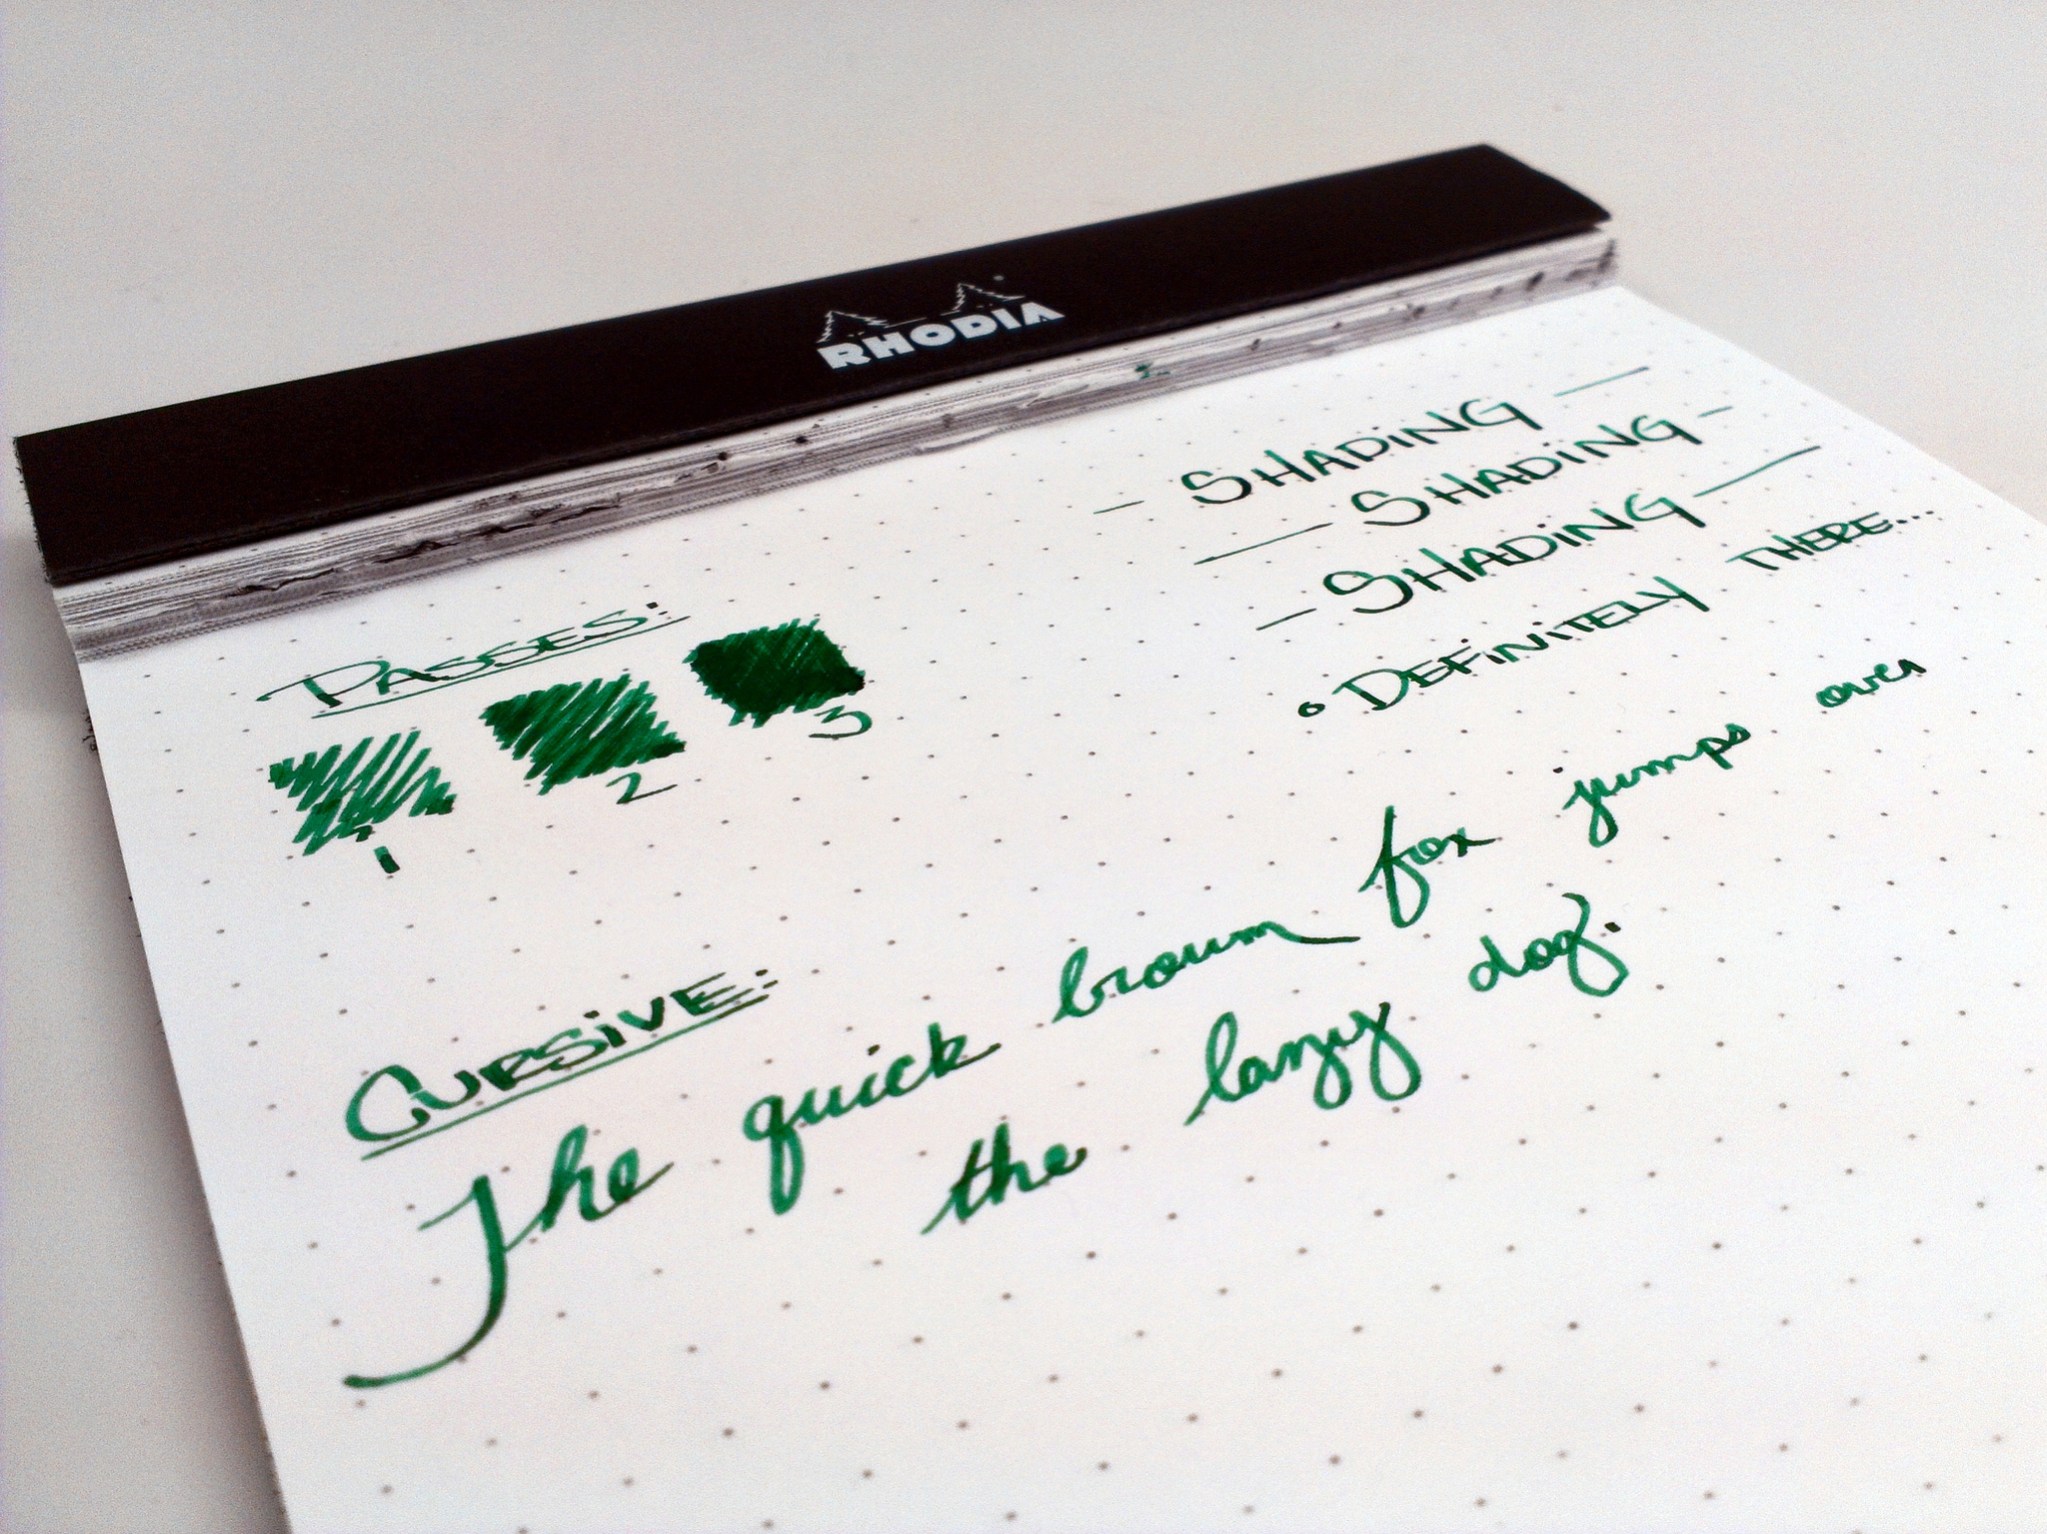 RHODIA
— SHADING —
— SHADING —
— SHADING —
• DEFINITELY THERE...
PASSES:
1 2 3
CURSIVE:
The quick brown fox jumps over
the lazy dog.